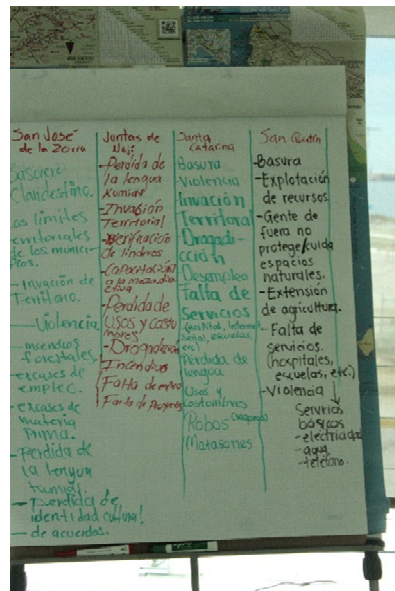 San José
de la Zorra
Basurero
Clandestino.
los limites
territoriales
de los munici-
pios.
- Invación de
Territorio.
- Violencia
- incendios
forestales
- excases de
empleo.
- excases de
materia
Prima.
- Perdida de
la lengua
kumiai.
- perdida de
identidad cultural
- de acuerdos.
Juntas de
Neji
- Perdida de
la lengua
Kumiai
- Invasión
Territorial
de linderos
- Capacitación
- Perdida de
Usos y costu
mbres
- Drogadicción
Incendios
Falta de empleo
Falta de Proyectos
Santa
Catarina
Basura
Violencia
Invación
Territoral
Drogadi-
cción
Desempleo
Falta de
Servicios
(hospital, Internet
señal, escuelas,
etc)
Perdida de
lengua
Usos y
costumbres
Robos
Matasones
San Quintín
- Basura
- Explotación
de recursos
- Gente de
fuera no
protege/cuida
espacios
naturales.
- Extensión
de agricultura.
- Falta de
servicios.
(hospitales,
escuelas, etc.)
- Violencia
Servicios
básicos
- electricidad
- agua
- teléfono.